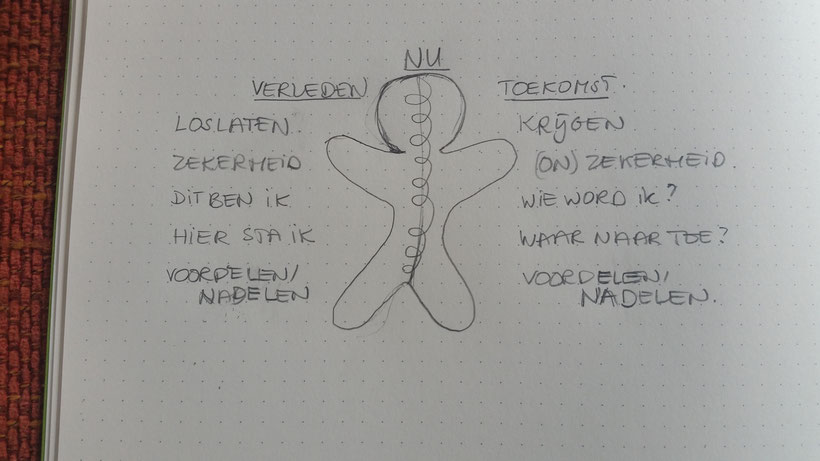 NU
VERLEDEN
LOSLATEN.
ZEKERHEID
DIT BEN IK
HIER STA IK
VOORDELEN/
NADELEN
TOEKOMST.
KRIJGEN
(ON)ZEKERHEID.
WIE WORD IK?
WAAR NAAR TOE?
VOORDELEN/
NADELEN.